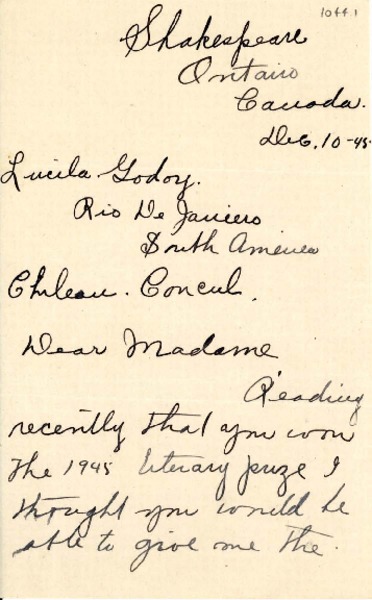 1 of 1
Shakespeare
Ontario
Canada.
Dec. 10-45-
Lucila Godoy.
Rio De Janiero
South America
Chilean. Concul.
Dear Madame
Reading
recently that you won
the 1945 literary prize I
thought you would be
able to give me the.